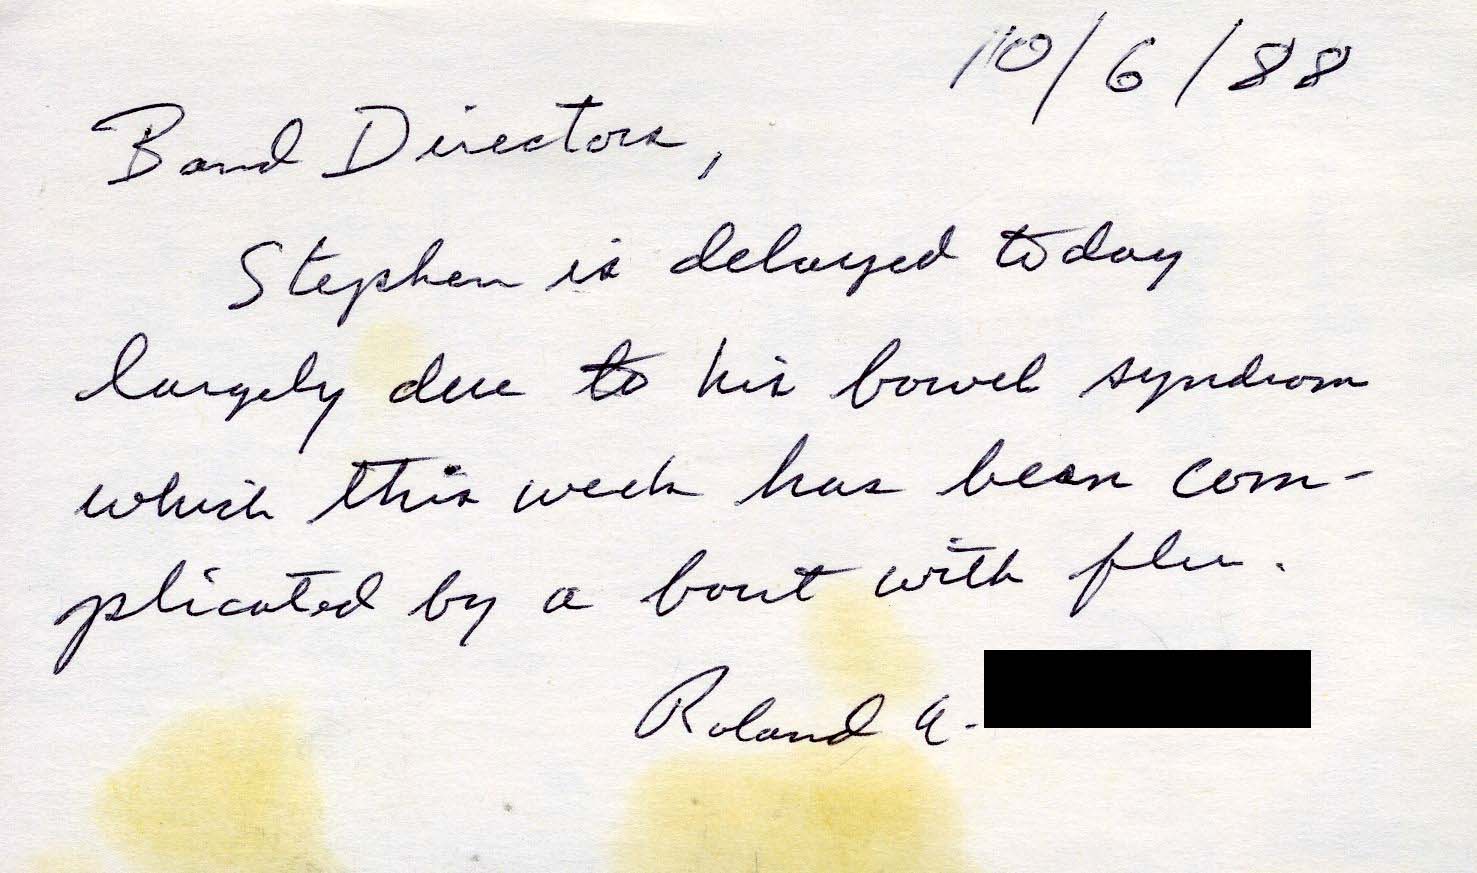 10/6/88
Band Directors,
Stephen is delayed today
largely due to his bowel syndrom
which this week has been com-
plicated by a bout with flu.
Roland A.